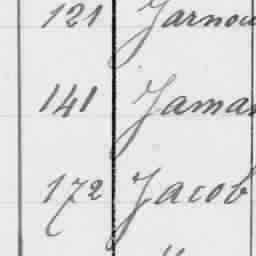 121 Jarnou
141 Jaman
172 Jacob